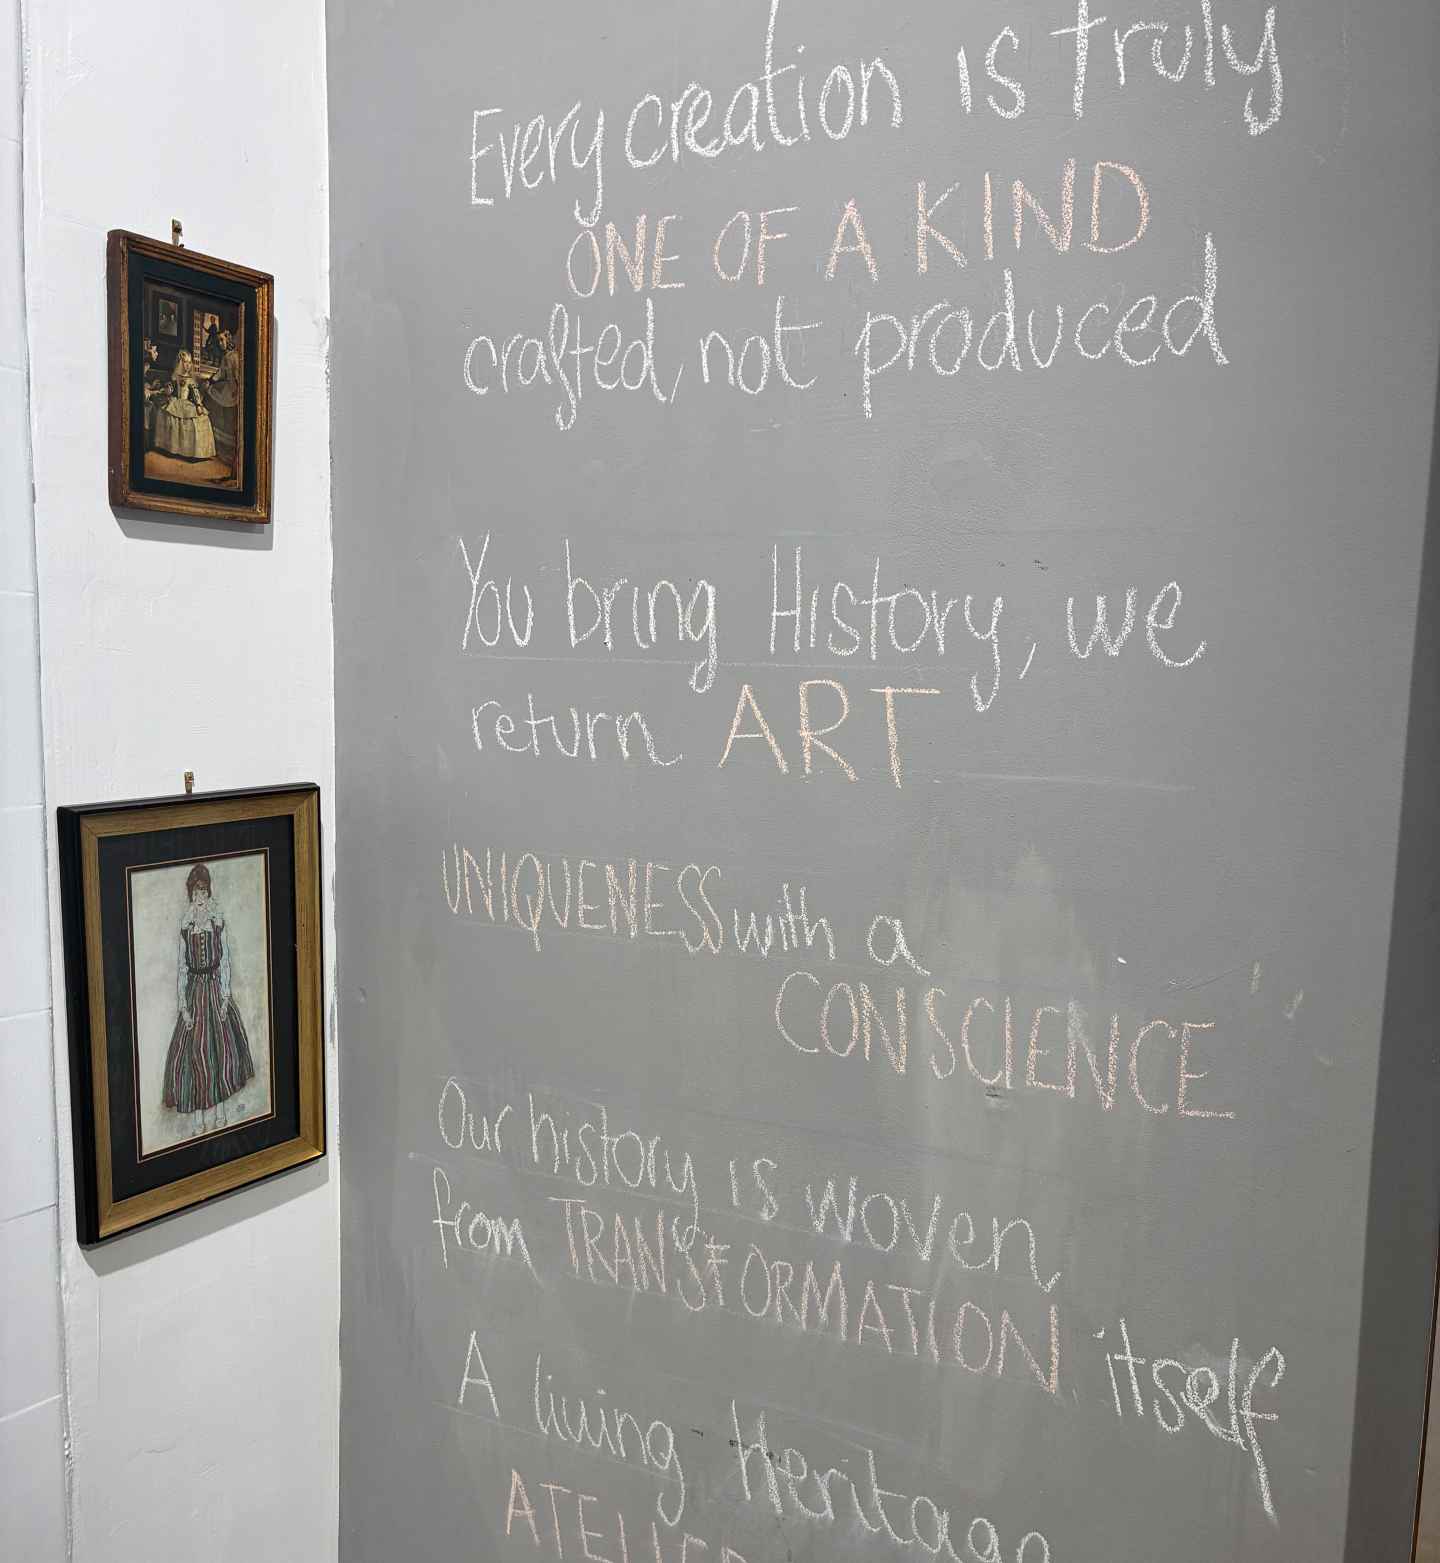 Every creation is truly
ONE OF A KIND
crafted, not produced
You bring History, we
return ART
UNIQUENESS with a
CONSCIENCE
Our history is woven
from TRANSFORMATION itself
A living Heritage
ATELIER